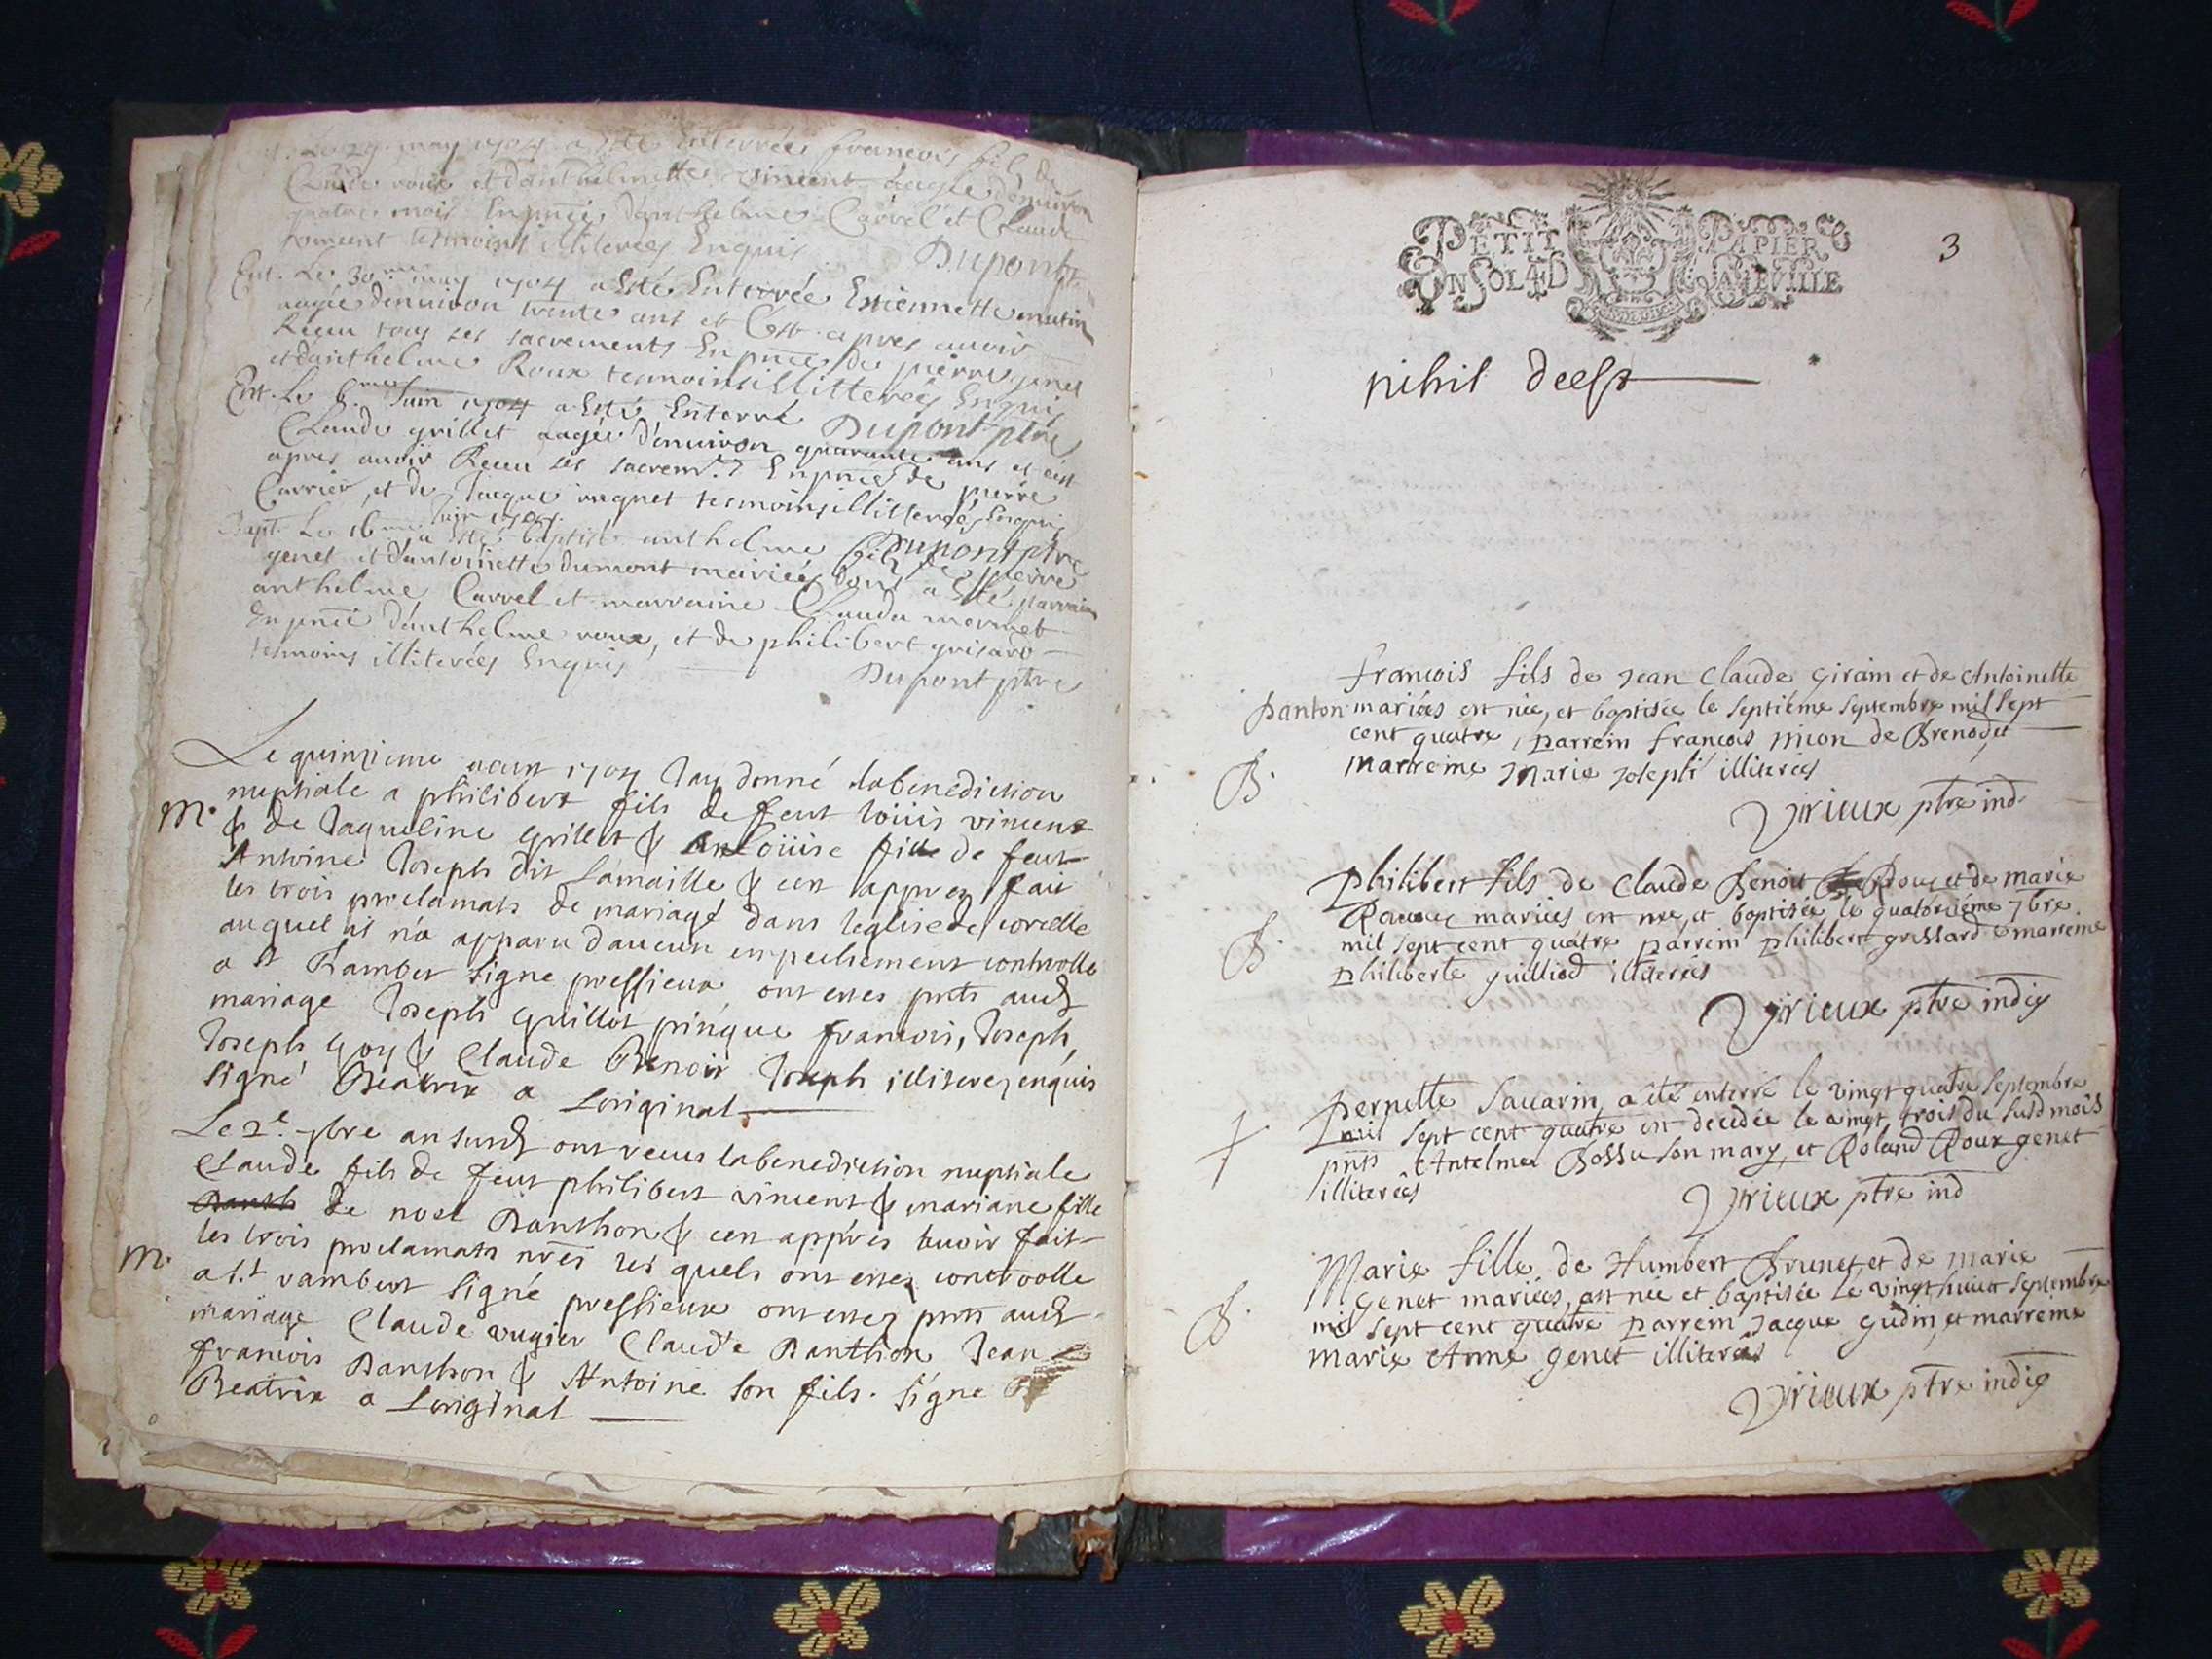 Le 29 may 1704 a Esté Enterrée francois fils de
Claude roux et d'anthelmette vincent aagée d'enuiron
quatre mois En pnce d'anthelme Carrel et Claude
vincent tesmoins illiterées Enquis
Dupont ptre
Ent. Le 30me may 1704 a Esté Enterrée Estiennette mutin
aagée d'enuiron trente ans et C'est apres auoir
Receu tous ses sacrements En pnce de pierre genet
et d'anthelme Roux tesmoins illitterées Enquis
Dupont ptre
Ent. Le 6me Juin 1704 a Esté Enterré
Claude grillet aagée d'enuiron quarante ans et c'est
apres auoir Receu ses sacremts En pnce de pierre
Carrier, et de Jacque muguet tesmoins illitterées Enquis
Dupont ptre
Bapt. Le 16me Juin 1704 a Esté baptisé anthelme fils de pierre
genet et d'antoinette dumont mariées dont a Esté parrain
anthelme Carrel et marraine Claudu mermet
En pnce d'anthelme roux, et de philibert grisard
tesmoins illiterées Enquis
Dupont ptre
Le quinzieme aoust 1704 Jay donné la benediction
nuptiale a philibert fils de feut loüis vincent
M. & de Jaqueline Grillet & loüise fille de feut
Antoine Joseph dit lamaille & cest appres fait
les trois proclamats de mariage dans leglise de corcelle
auquel il n'a apparu d'aucun enpeschement controlle
a st Rambert signe pressieux ont estes pnts audt
mariage Joseph Guillot pinque francois, Joseph,
Joseph Goy & Claude Benoit Joseph illiterez enquis
signé Beatrix a Loriginal
Le 2e 7bre an susdt ont receus la benediction nuptiale
Claude fils de feut philibert vincent & mariane fille
Banth de noel Banthon & cest appres auoir fait
M. les trois proclamats nres les quels ont estes controolle
a st rambert signé pressieux ont estez pnts audt
mariage Claude vugier Claude Banthon Jean
francois Banthon & Antoine son fils. signe B
Beatrix a Loriginal
PETIT PAPIER
UN SOL 4D LA FEVILLE
3
nihil deest
francois fils de Jean Claude Giram et de Antoinette
panton mariées est née, et baptisée le septiéme septembre mil sept
cent quatre, parrein francois nion de Brenod et
B. marreine marie Joseph illiterées
Virieux ptre ind.
philibert fils de Claude Benoit Roux et de marie
Rauou mariées est nee, et baptisée le quatorzieme 7bre
B. mil sept cent quatre parrein philibert grissard & marreine
philiberte guilliod illiterées
Virieux ptre indig
pernette sauarin a été enterré le vingt quatre septembre
mil sept cent quatre est decedée le vingt trois du susd mois
pnts Antelme Bossu son mary, et Roland Roux genet
illiterées
Virieux ptre ind
Marie fille de Humbert Brunet et de marie
genet mariées, est née et baptisée le vingt huict septembre
B. mil sept cent quatre parrein Jacque gudin, et marreine
marie Anne genet illiterées
Virieux ptre indig